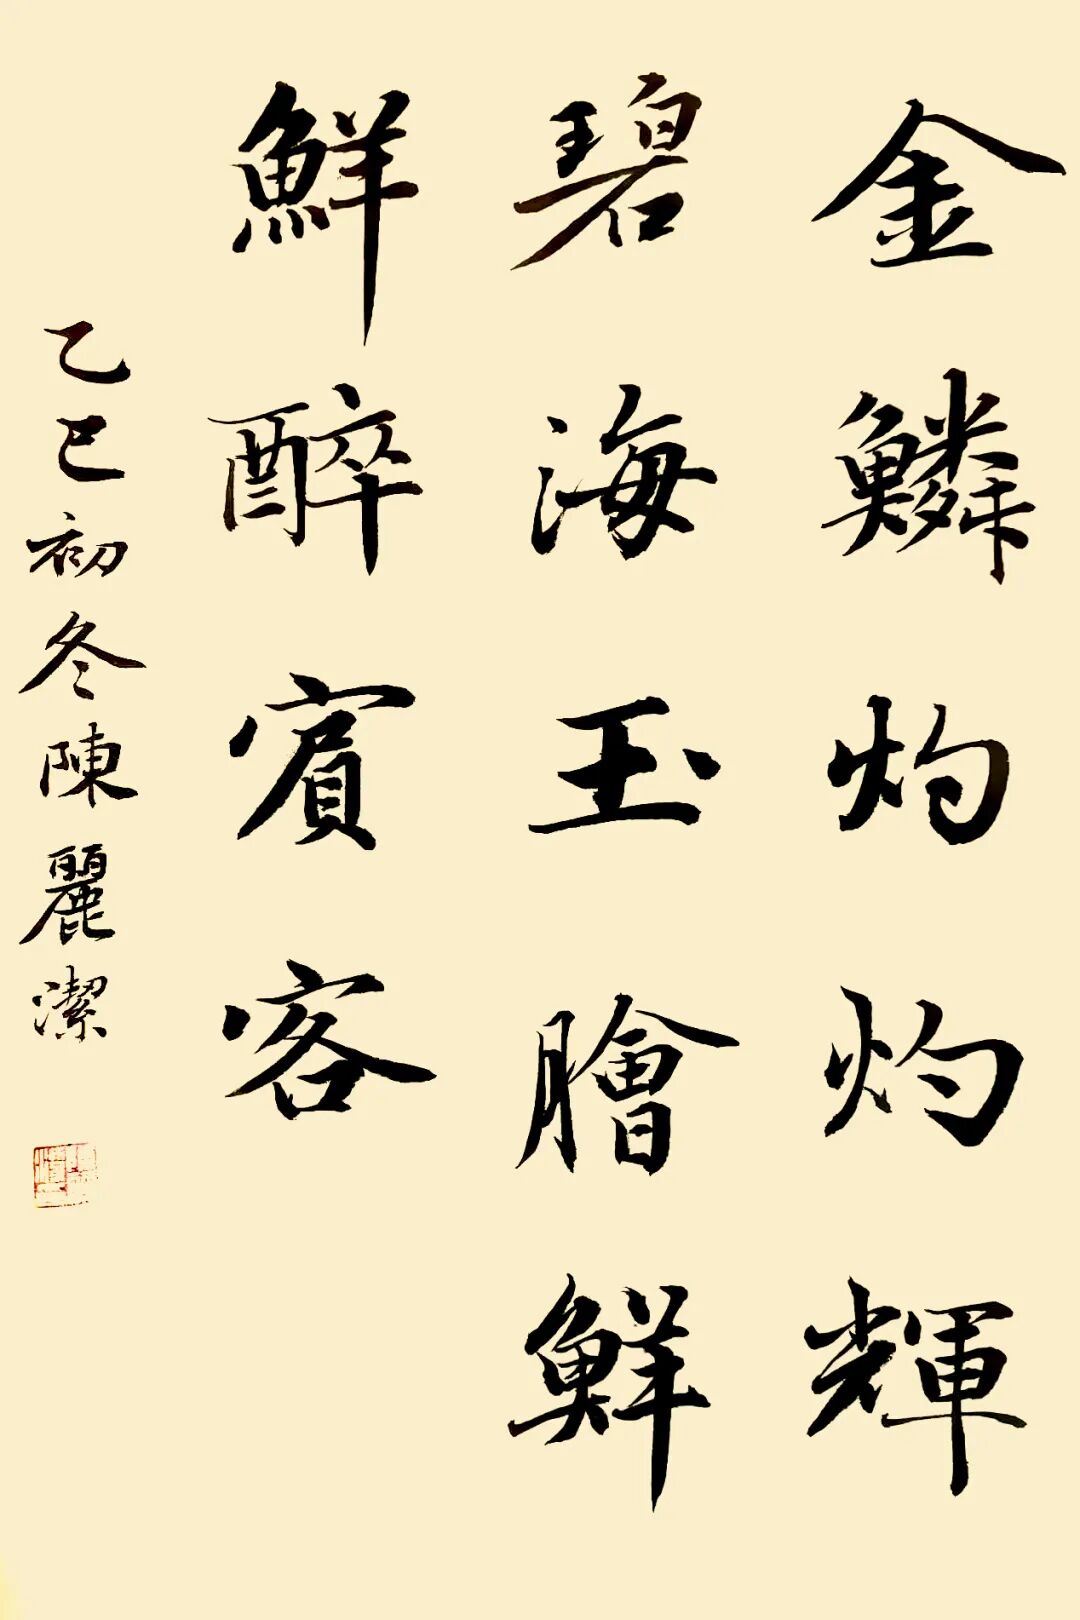 金鱗灼灼輝
碧海玉膾鮮
鮮醉賓客
乙巳初冬陳麗潔